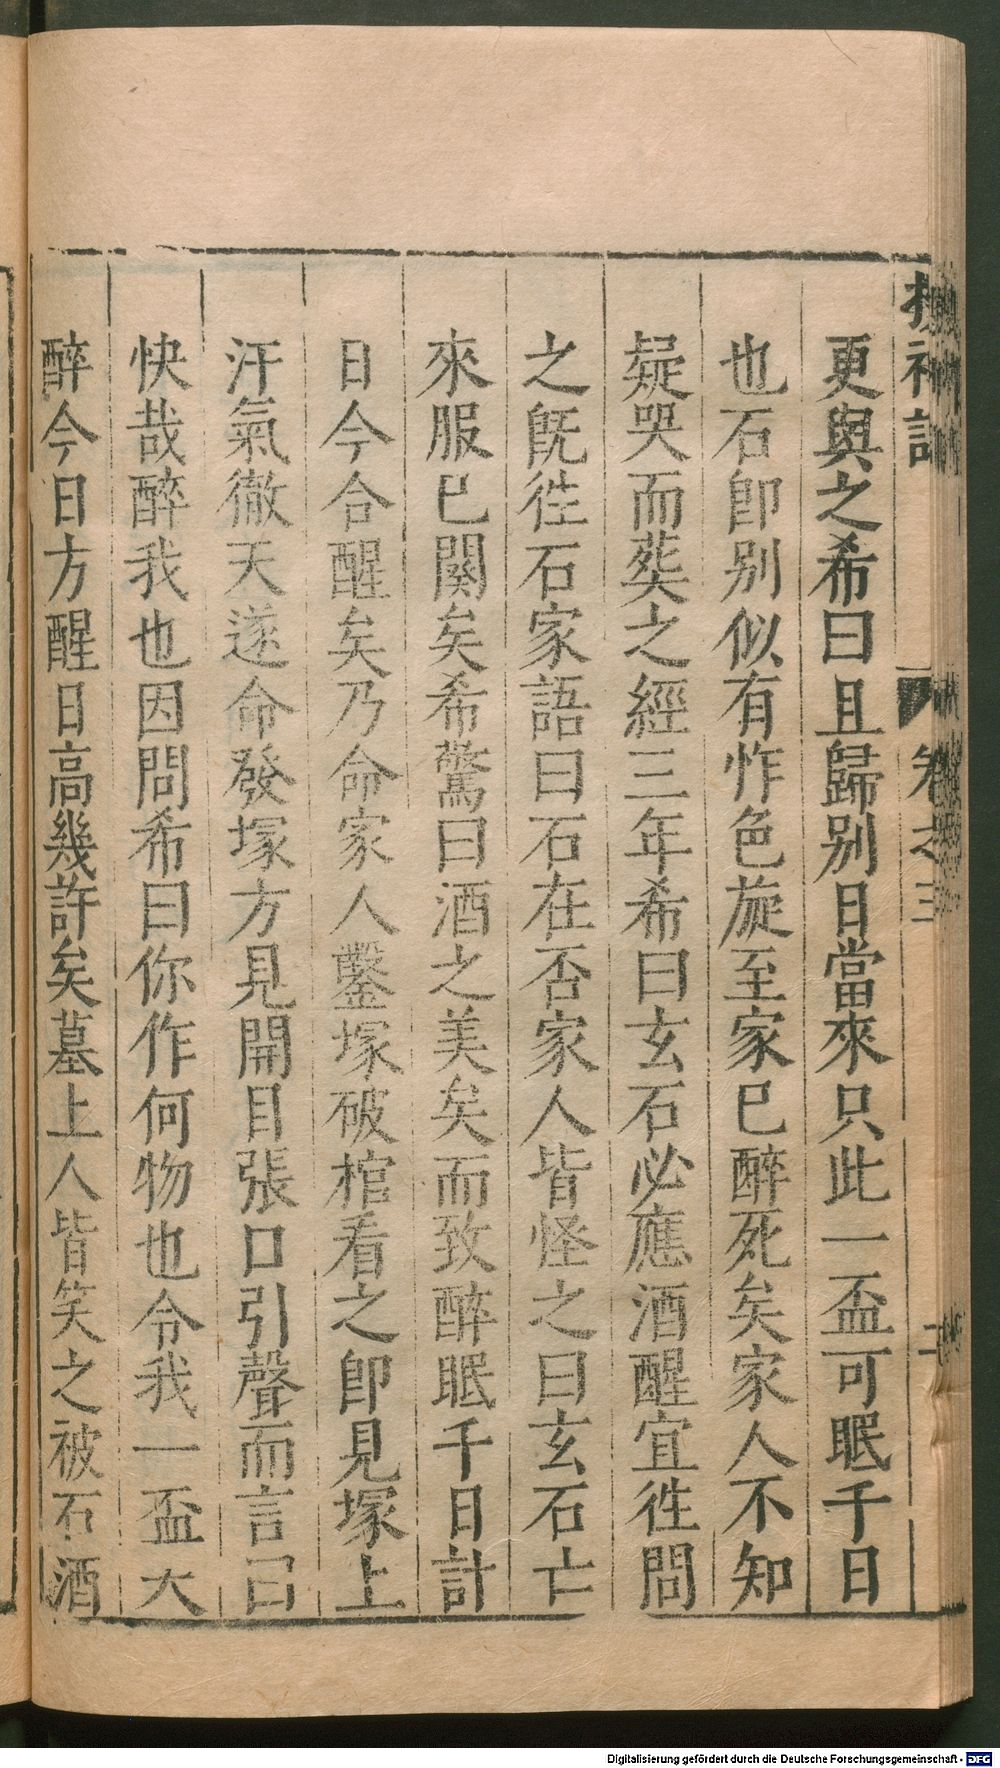 搜神記 卷之三
更與之希曰且歸别日當來只此一盃可眠千日
也石卽别似有怍色旋至家已醉死矣家人不知
疑哭而葬之經三年希曰玄石必應酒醒宜徃問
之旣徃石家語曰石在否家人皆怪之曰玄石亡
來服已闋矣希驚曰酒之美矣而致醉眠千日計
日今合醒矣乃命家人鑿塚破棺看之卽見塚上
汗氣徹天遂命發塚方見開目張口引聲而言曰
快哉醉我也因問希曰你作何物也令我一盃大
醉今日方醒日高幾許矣墓上人皆笑之被石酒
Digitalisierung gefördert durch die Deutsche Forschungsgemeinschaft - DFG